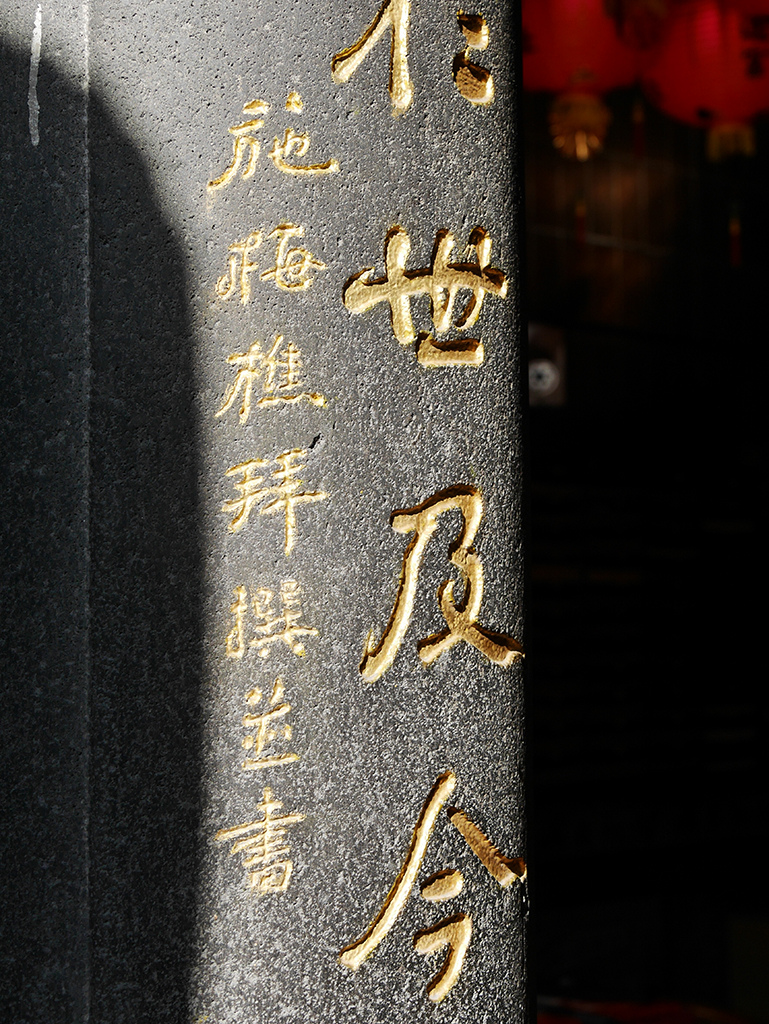 世及今
施梅樵拜撰並書